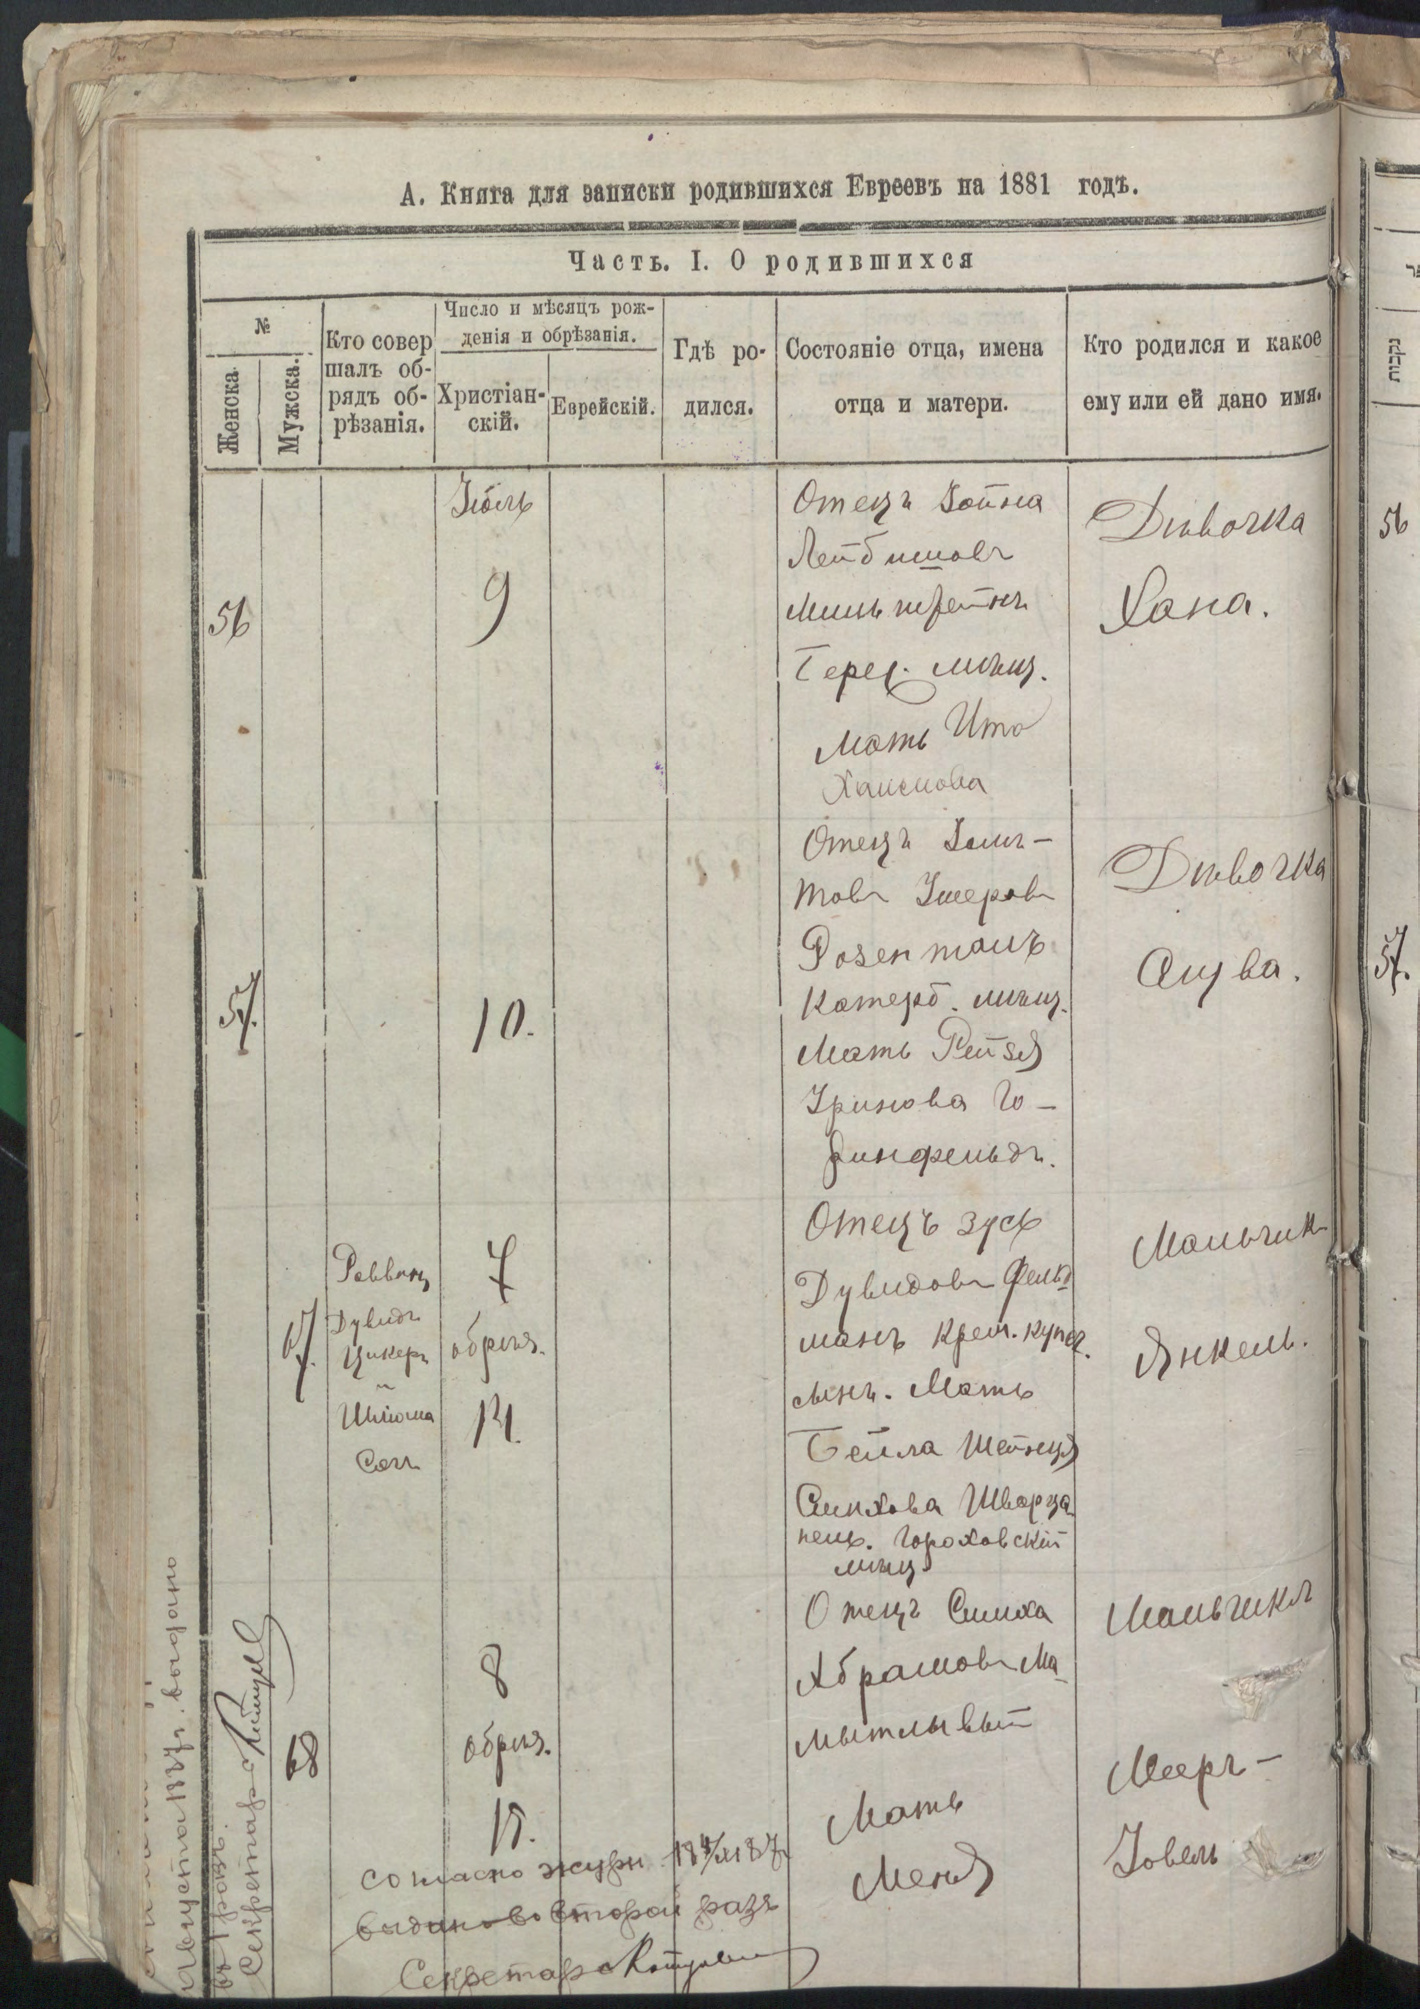 А. Книга для записки родившихся Евреевъ на 1881 годъ.
Часть. I. О родившихся
№
Женска.
Мужска.
Кто совер
шалъ об-
рядъ об-
рѣзанія.
Число и мѣсяцъ рож-
денія и обрѣзанія.
Христіан-
скій.
Еврейскій.
Гдѣ ро-
дился.
Состояніе отца, имена
отца и матери.
Кто родился и какое
ему или ей дано имя.
נקבות
56
Іюль
9
Отецъ Іойна
Лейбишовъ
Мильштейнъ
мѣщ.
Мать Ита
Хаимова
Дѣвочка
Хана.
56
57.
10.
Отецъ
товъ
Розенманъ
Катерб. мѣщ.
Мать Рейзя
Дѣвочка
57.
67.
Раввинъ
Дувидъ
Цукеръ
и
Шліома
7
обрѣз.
14.
Отецъ Зусь
Дувидовъ Фельд
манъ Крем. купеч.
сынъ. Мать
Бейла Шейнця
Симхова Шварца
пель. Гороховскій
мѣщ
Мальчикъ
Янкель.
68
8
обрѣз.
15.
Отецъ Симха
Абрамовъ Ма
мытлывый
Мать
Меня
Мальчикъ
Мееръ-
Іовель
согласно журн.
выдано во второй разъ
Секретарь
Августа выдано
въ 1 разъ.
Секретарь